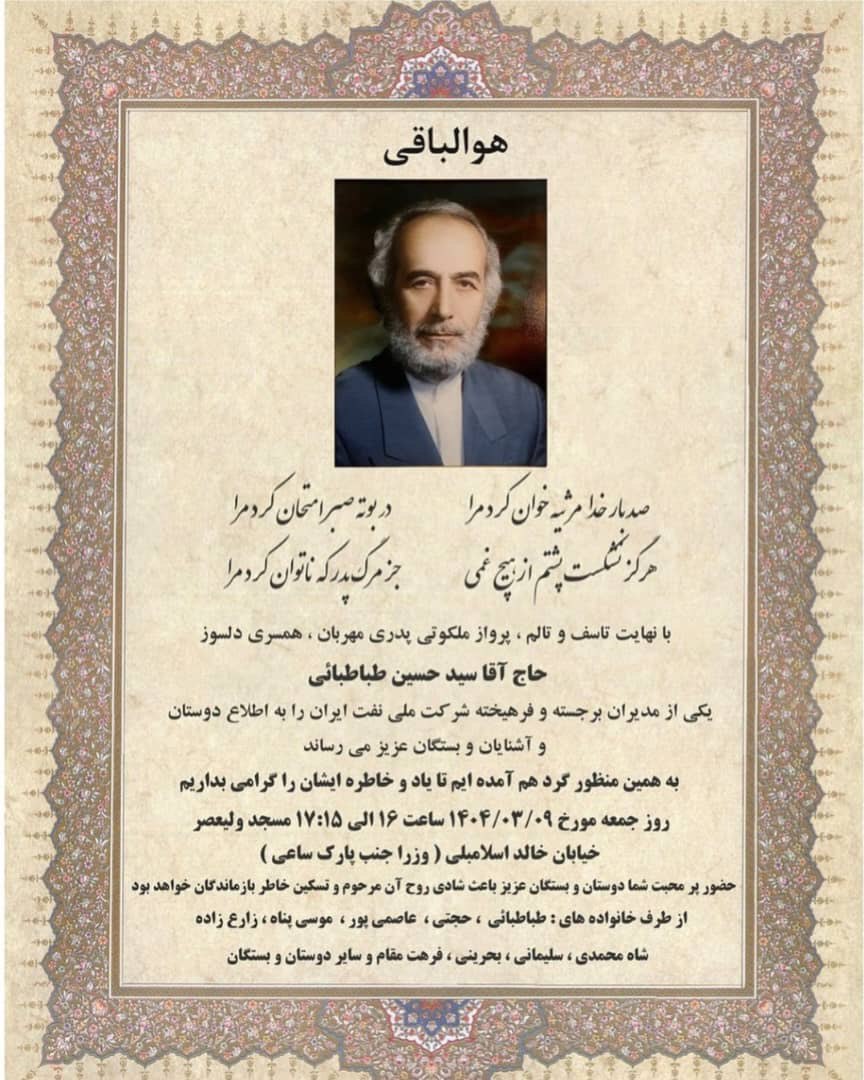 هوالباقی
صدبار خدا مرثیه خوان کرد مرا در بوته صبر امتحان کرد مرا
هرگز نشکست پشتم از هیچ غمی جز مرگ پدر که ناتوان کرد مرا
با نهایت تاسف و تالم ، پرواز ملکوتی پدری مهربان ، همسری دلسوز
حاج آقا سید حسین طباطبائی
یکی از مدیران برجسته و فرهیخته شرکت ملی نفت ایران را به اطلاع دوستان
و آشنایان و بستگان عزیز می رساند
به همین منظور گرد هم آمده ایم تا یاد و خاطره ایشان را گرامی بداریم
روز جمعه مورخ ۱۴۰۴/۰۳/۰۹ ساعت ۱۶ الی ۱۷:۱۵ مسجد ولیعصر
خیابان خالد اسلامبلی ( وزرا جنب پارک ساعی )
حضور پر محبت شما دوستان و بستگان عزیز باعث شادی روح آن مرحوم و تسکین خاطر بازماندگان خواهد بود
از طرف خانواده های : طباطبائی ، حجتی ، عاصمی پور ، موسی پناه ، زارع زاده
شاه محمدی ، سلیمانی ، بحرینی ، فرهت مقام و سایر دوستان و بستگان